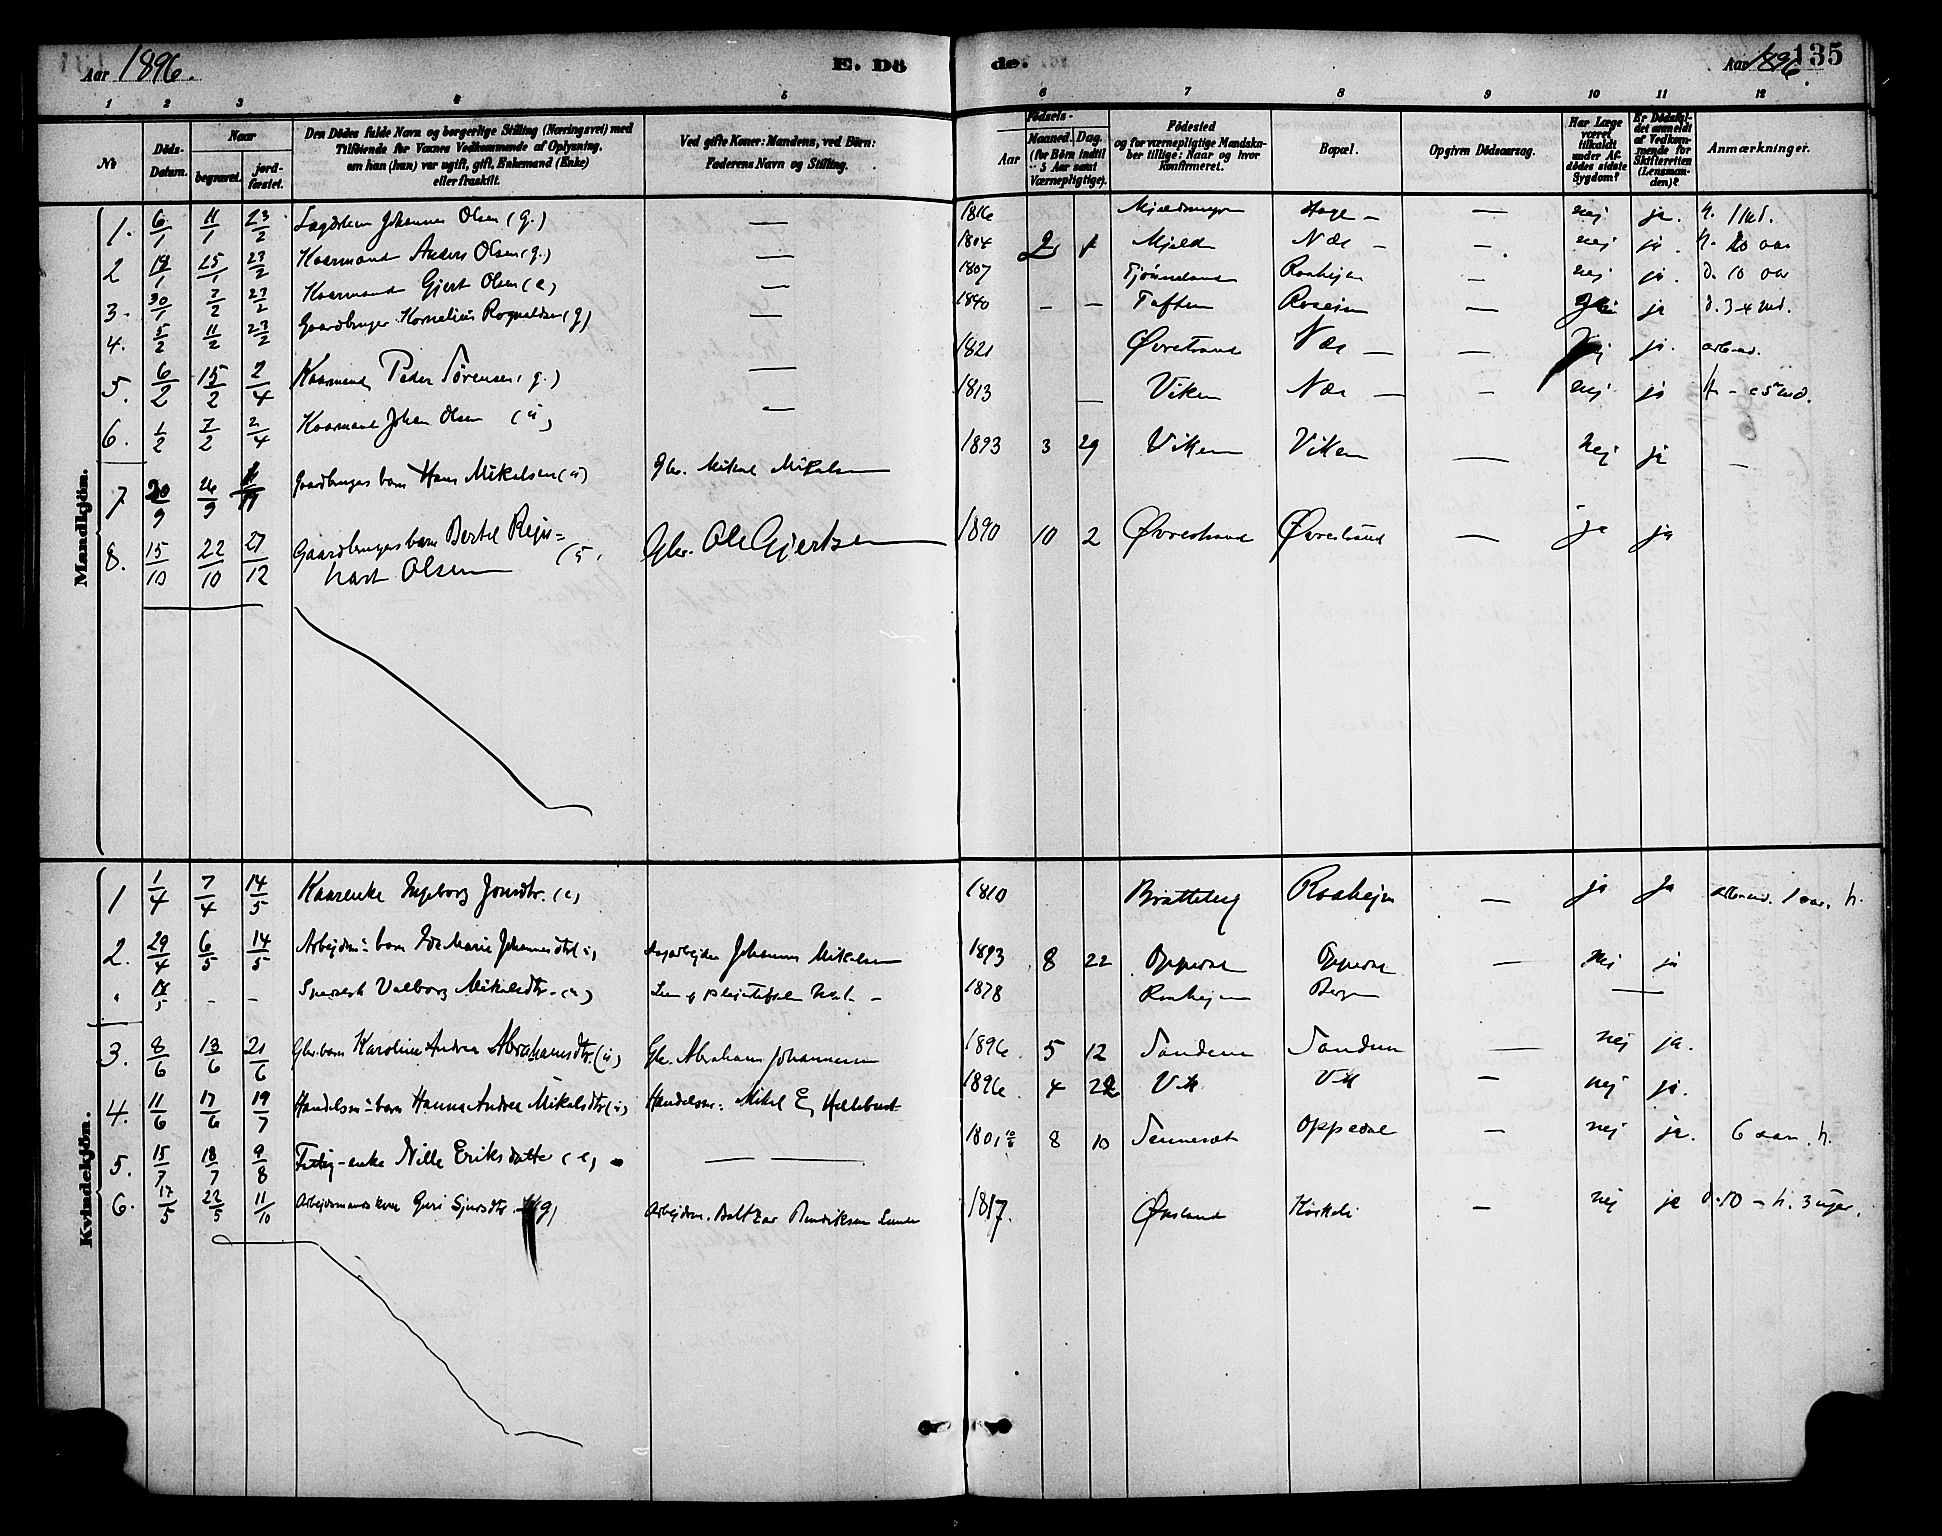 Aar 1896.
E. Dö
de.
Aar 1896.
135
1 2 3 4 5 6 7 8 9 10 11 12
No
Döds-
Datum.
Naar
begravet.
jord-
fæstet.
Den Dödes fulde Navn og borgerlige Stilling (Næringsvei) med
Tilföiende for Voxnes Vedkommende af Oplysning,
om han (hun) var ugift, gift, Enkemand (Enke)
eller fraskilt.
Ved gifte Koner: Mandens, ved Börn:
Faderens Navn og Stilling.
Födsels-
Aar
Maaned.
Dag.
(for Börn indtil
5 Aar samt
Værnepligtige).
Födested
og for værnepligtige Mandska-
ber tillige: Naar og hvor
konfirmeret.
Bopæl.
Opgiven Dödsaarsag.
Har Læge
været
tilkaldt
under Af-
dödes sidste
Sygdom?
Er Dödsfal-
det anmeldt
af Vedkom-
mende for
Skifteretten
(Lensman-
den)?
Anmærkninger.
Mandkjön.
1. 6/1 11/1 23/2 Johannes Olsen (g.) — 1816 — nej ja.
2 18/1 25/1 23/2 Kaarmand Anders Olsen (g.) — 1804 2 1 Mjeld Næs — — nej ja h. 20 aar
3. 30/1 7/2 23/2 Kaarmand Gjert Olsen (e) — 1807 Roahejen — nej ja. d. 10 aar
4. 5/2 11/2 23/2 Gaardbruger Kornelius Rognaldsen (g) — 1840 — — Toften — ja d. 3-4 ud.
5. 6/2 15/2 2/4 Kaarmand Peder Sörensen (g.) — 1821 Øvrestrand Næs — — nej ja. arb.ud.
6. 1/2 7/2 2/4 Kaarmand Johan Olsen (u) — 1813 — Viken Næs — — nej ja
7 20/9 26/9 Gaardbrugers barn Hans Mikalsen (u) Gbr. Mikal Mikalsen 1893 3 29 Viken Viken — nej ja —
8. 15/10 22/10 27/12 Gaardbrugers barn Bertel Rejn=
hart Olsen Gbr. Ole Gjertsen 1890 10 2 Øvrestrand Øvrestrand — ja ja
Kvindekjön.
1 1/4 7/4 14/5 Kaarenke Ingeborg Jonsdtr. (e) 1810 Bratteberg Roahejen — ja ja arb.ud. 1 aar. h.
2. 29/4 6/5 14/5 Arbejdsm: barn Ida Marie Johannesdtr (u) Johannes Mikalsen 1893 8 22 Oppedal Oppedal — nej ja
" 18/5 – – Valborg Mikalsdtr. (u) 1878 Roahejen Bergen —
3. 8/6 13/6 21/6 Gbr. barn Karoline Andrea Abrahamsdtr. (u) Gbr. Abraham Johannesen 1896 5 12 Sanden Sanden — nej ja.
4. 11/6 17/6 19/7 Handelsm: barn Hanna Andrea Mikalsdtr (u) Handelsm: Mikal E. 1896 4 22 Vik Vik — nej ja.
5. 15/7 18/7 9/8 enke Nille Eriksdatter (e) — — 1801 8 10 Oppedal — nej ja. 6 aar. h.
6. 17/5 22/5 11/10 Arbejdsmands kone Guri Sjursdtr. (g) Arbejdsm. Baltzar 1817. — nej ja d. 10 – h. 3 uger.